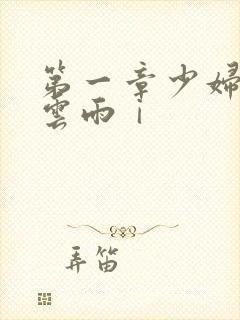 第一章少婦
雲雨｜
弄笛